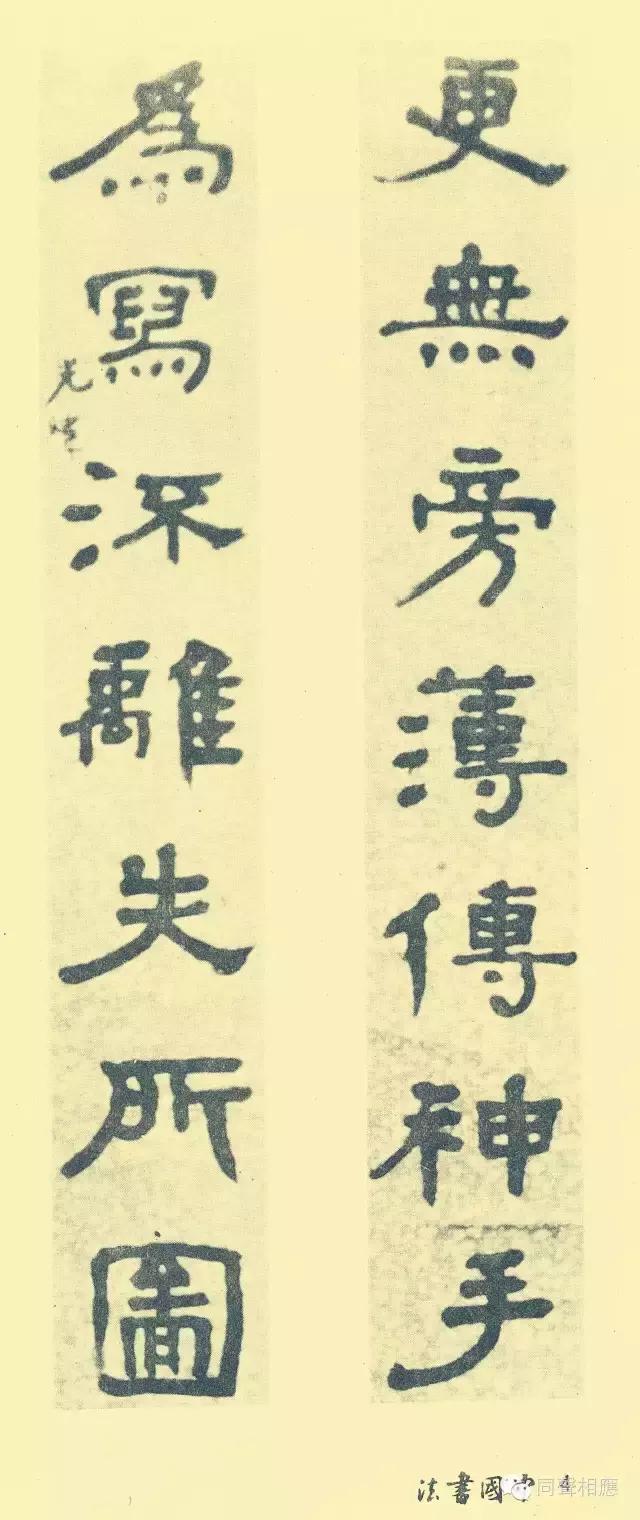 更無旁薄傳神手
爲寫流離失所圖
中國書法
4
同聲相應